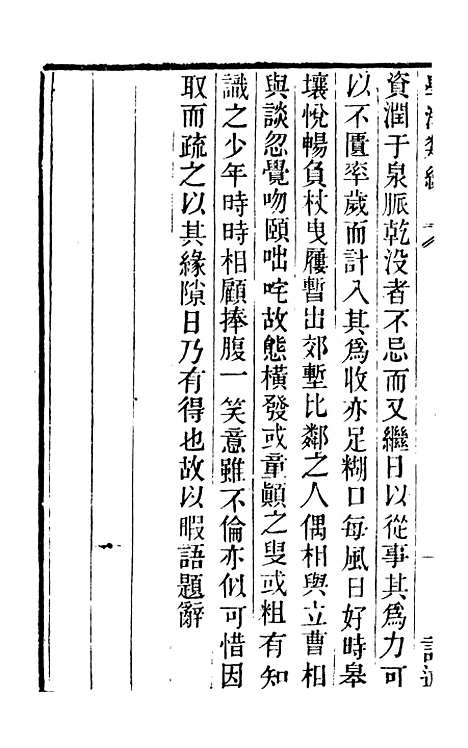 資潤于泉脈乾没者不忌而又繼日以從事其為力可
以不匱率歲而計入其為收亦足糊口每風日好時皋
壤悅暢負杖曳屨暫出郊塹比鄰之人偶相與立曹相
與談忽覺吻頤咄咤故態橫發或童顛之叟或粗有知
識之少年時時相顧捧腹一笑意雖不倫亦似可惜因
取而疏之以其緣隙日乃有得也故以暇語題辭